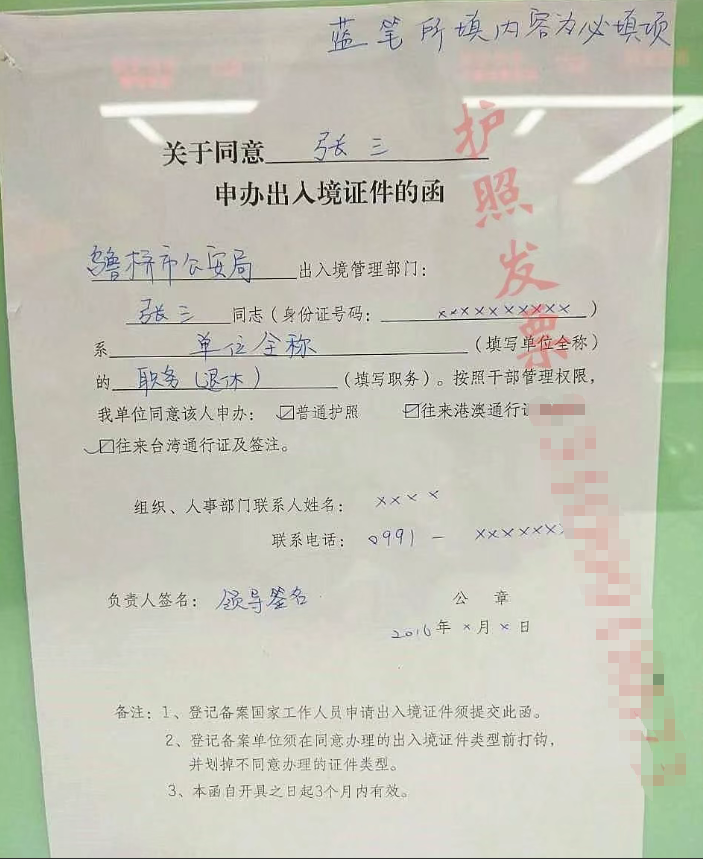 蓝笔所填内容为必填项
关于同意 张三
申办出入境证件的函
护照发票
乌鲁木齐市公安局 出入境管理部门：
张三 同志（身份证号码： xxxxxxxxxx ）
系 单位全称 （填写单位全称）
的 职务（退休） （填写职务）。按照干部管理权限，
我单位同意该人申办： ☑普通护照 ☑往来港澳通行证
☑往来台湾通行证及签注。
组织、人事部门联系人姓名： xxxx
联系电话： 0991 - xxxxxxx
负责人签名： 领导签名 公 章
2016年 x月 x日
备注：1、登记备案国家工作人员申请出入境证件须提交此函。
2、登记备案单位须在同意办理的出入境证件类型前打钩，
并划掉不同意办理的证件类型。
3、本函自开具之日起3个月内有效。